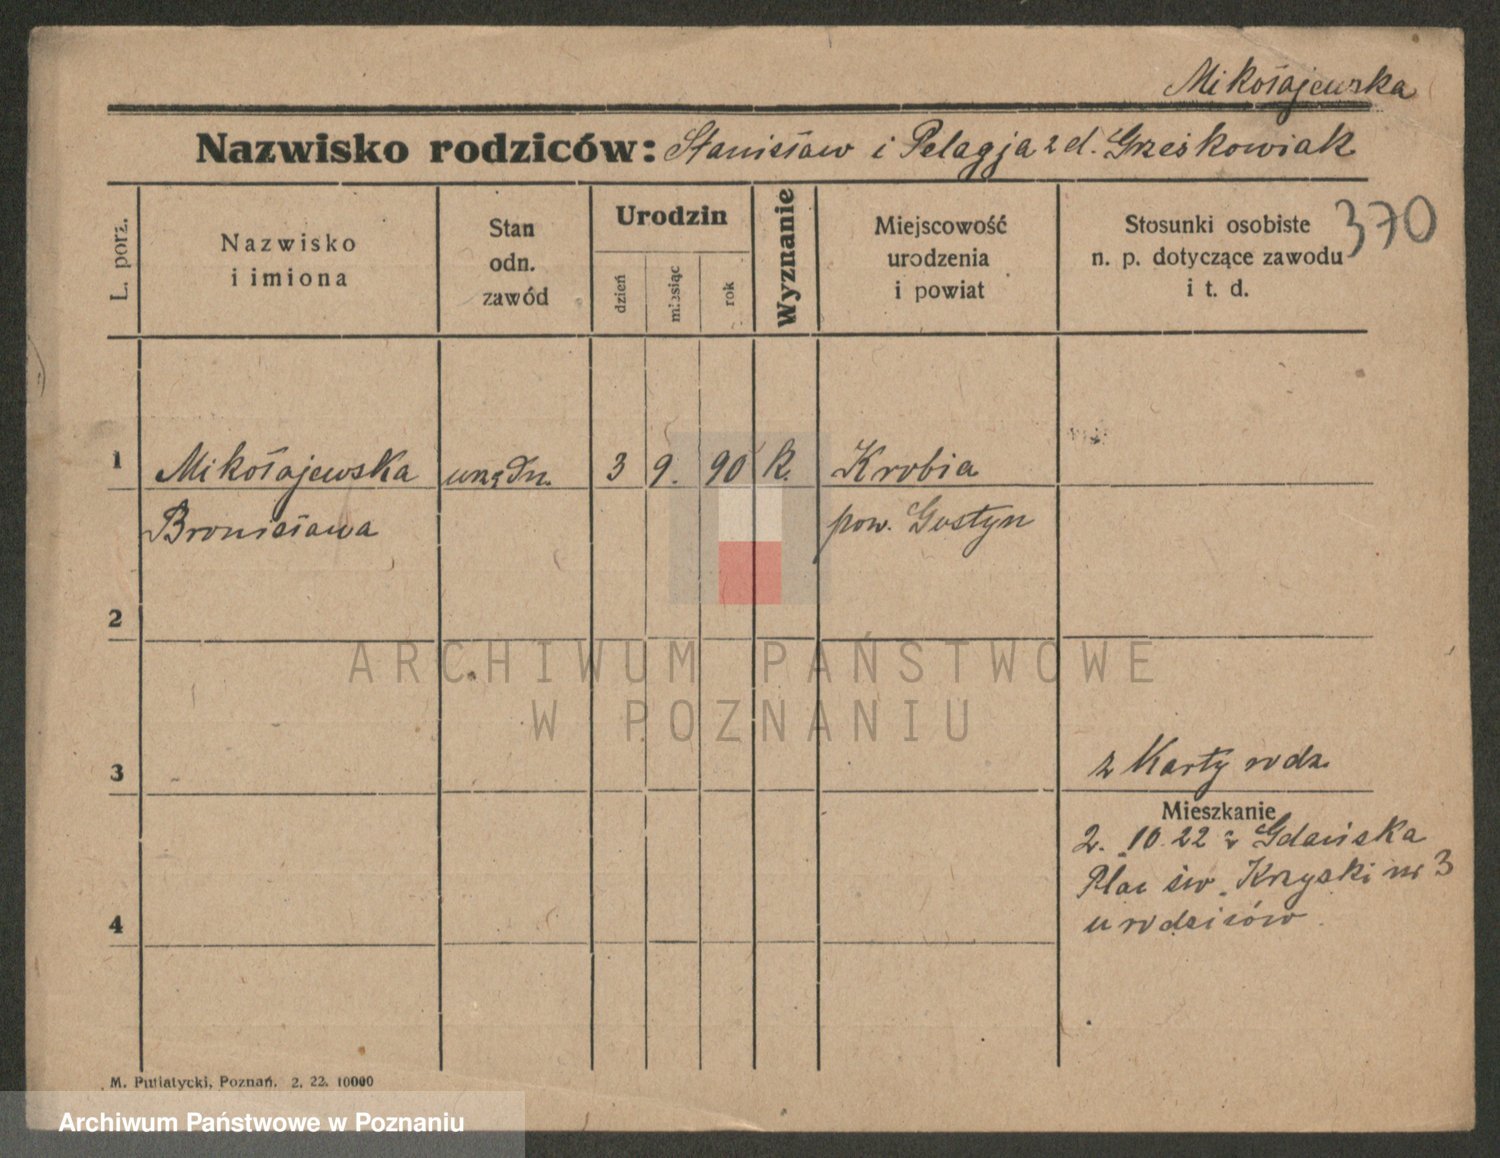 Mikołajewska
Nazwisko rodziców: Stanisław i Pelagja z d. Grześkowiak
370
L. porz.
Nazwisko
i imiona
Stan
odn.
zawód
Urodzin
dzień
miesiąc
rok
Wyznanie
Miejscowość
urodzenia
i powiat
Stosunki osobiste
n. p. dotyczące zawodu
i t. d.
1 Mikołajewska urzędn. 3 9. 90 k. Krobia
Bronisława pow. Gostyn
2
ARCHIWUM PAŃSTWOWE
W POZNANIU
3 z Karty rodz.
Mieszkanie
2. 10. 22 z Gdańska
Plac św. Krzyski nr 3
4 u rodziców.
M. Putiatycki, Poznań. 2. 22. 10000
Archiwum Państwowe w Poznaniu